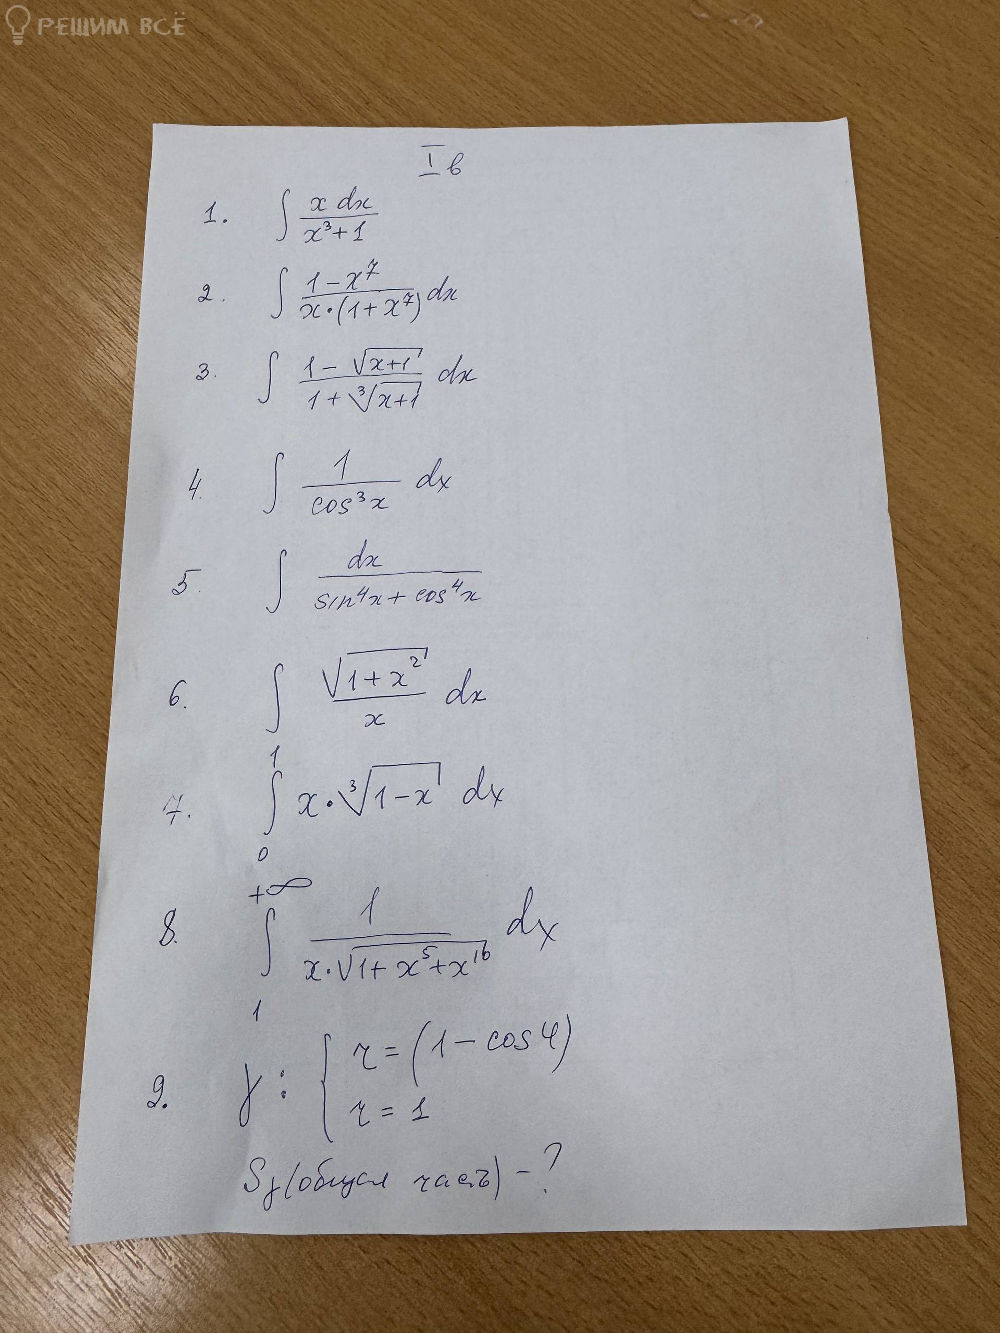 РЕШИМ ВСЁ
I в
1. ∫ x dx / (x³ + 1)
2. ∫ (1 − x⁷) / (x · (1 + x⁷)) dx
3. ∫ (1 − √(x+1)) / (1 + ³√(x+1)) dx
4. ∫ 1 / cos³x dx
5. ∫ dx / (sin⁴x + cos⁴x)
6. ∫ √(1 + x²) / x dx
7. ∫₀¹ x · ³√(1−x) dx
8. ∫₁^{+∞} 1 / (x · √(1 + x⁵ + x¹⁰)) dx
9. γ : { r = (1 − cos φ)
r = 1
Sγ (общая часть) − ?